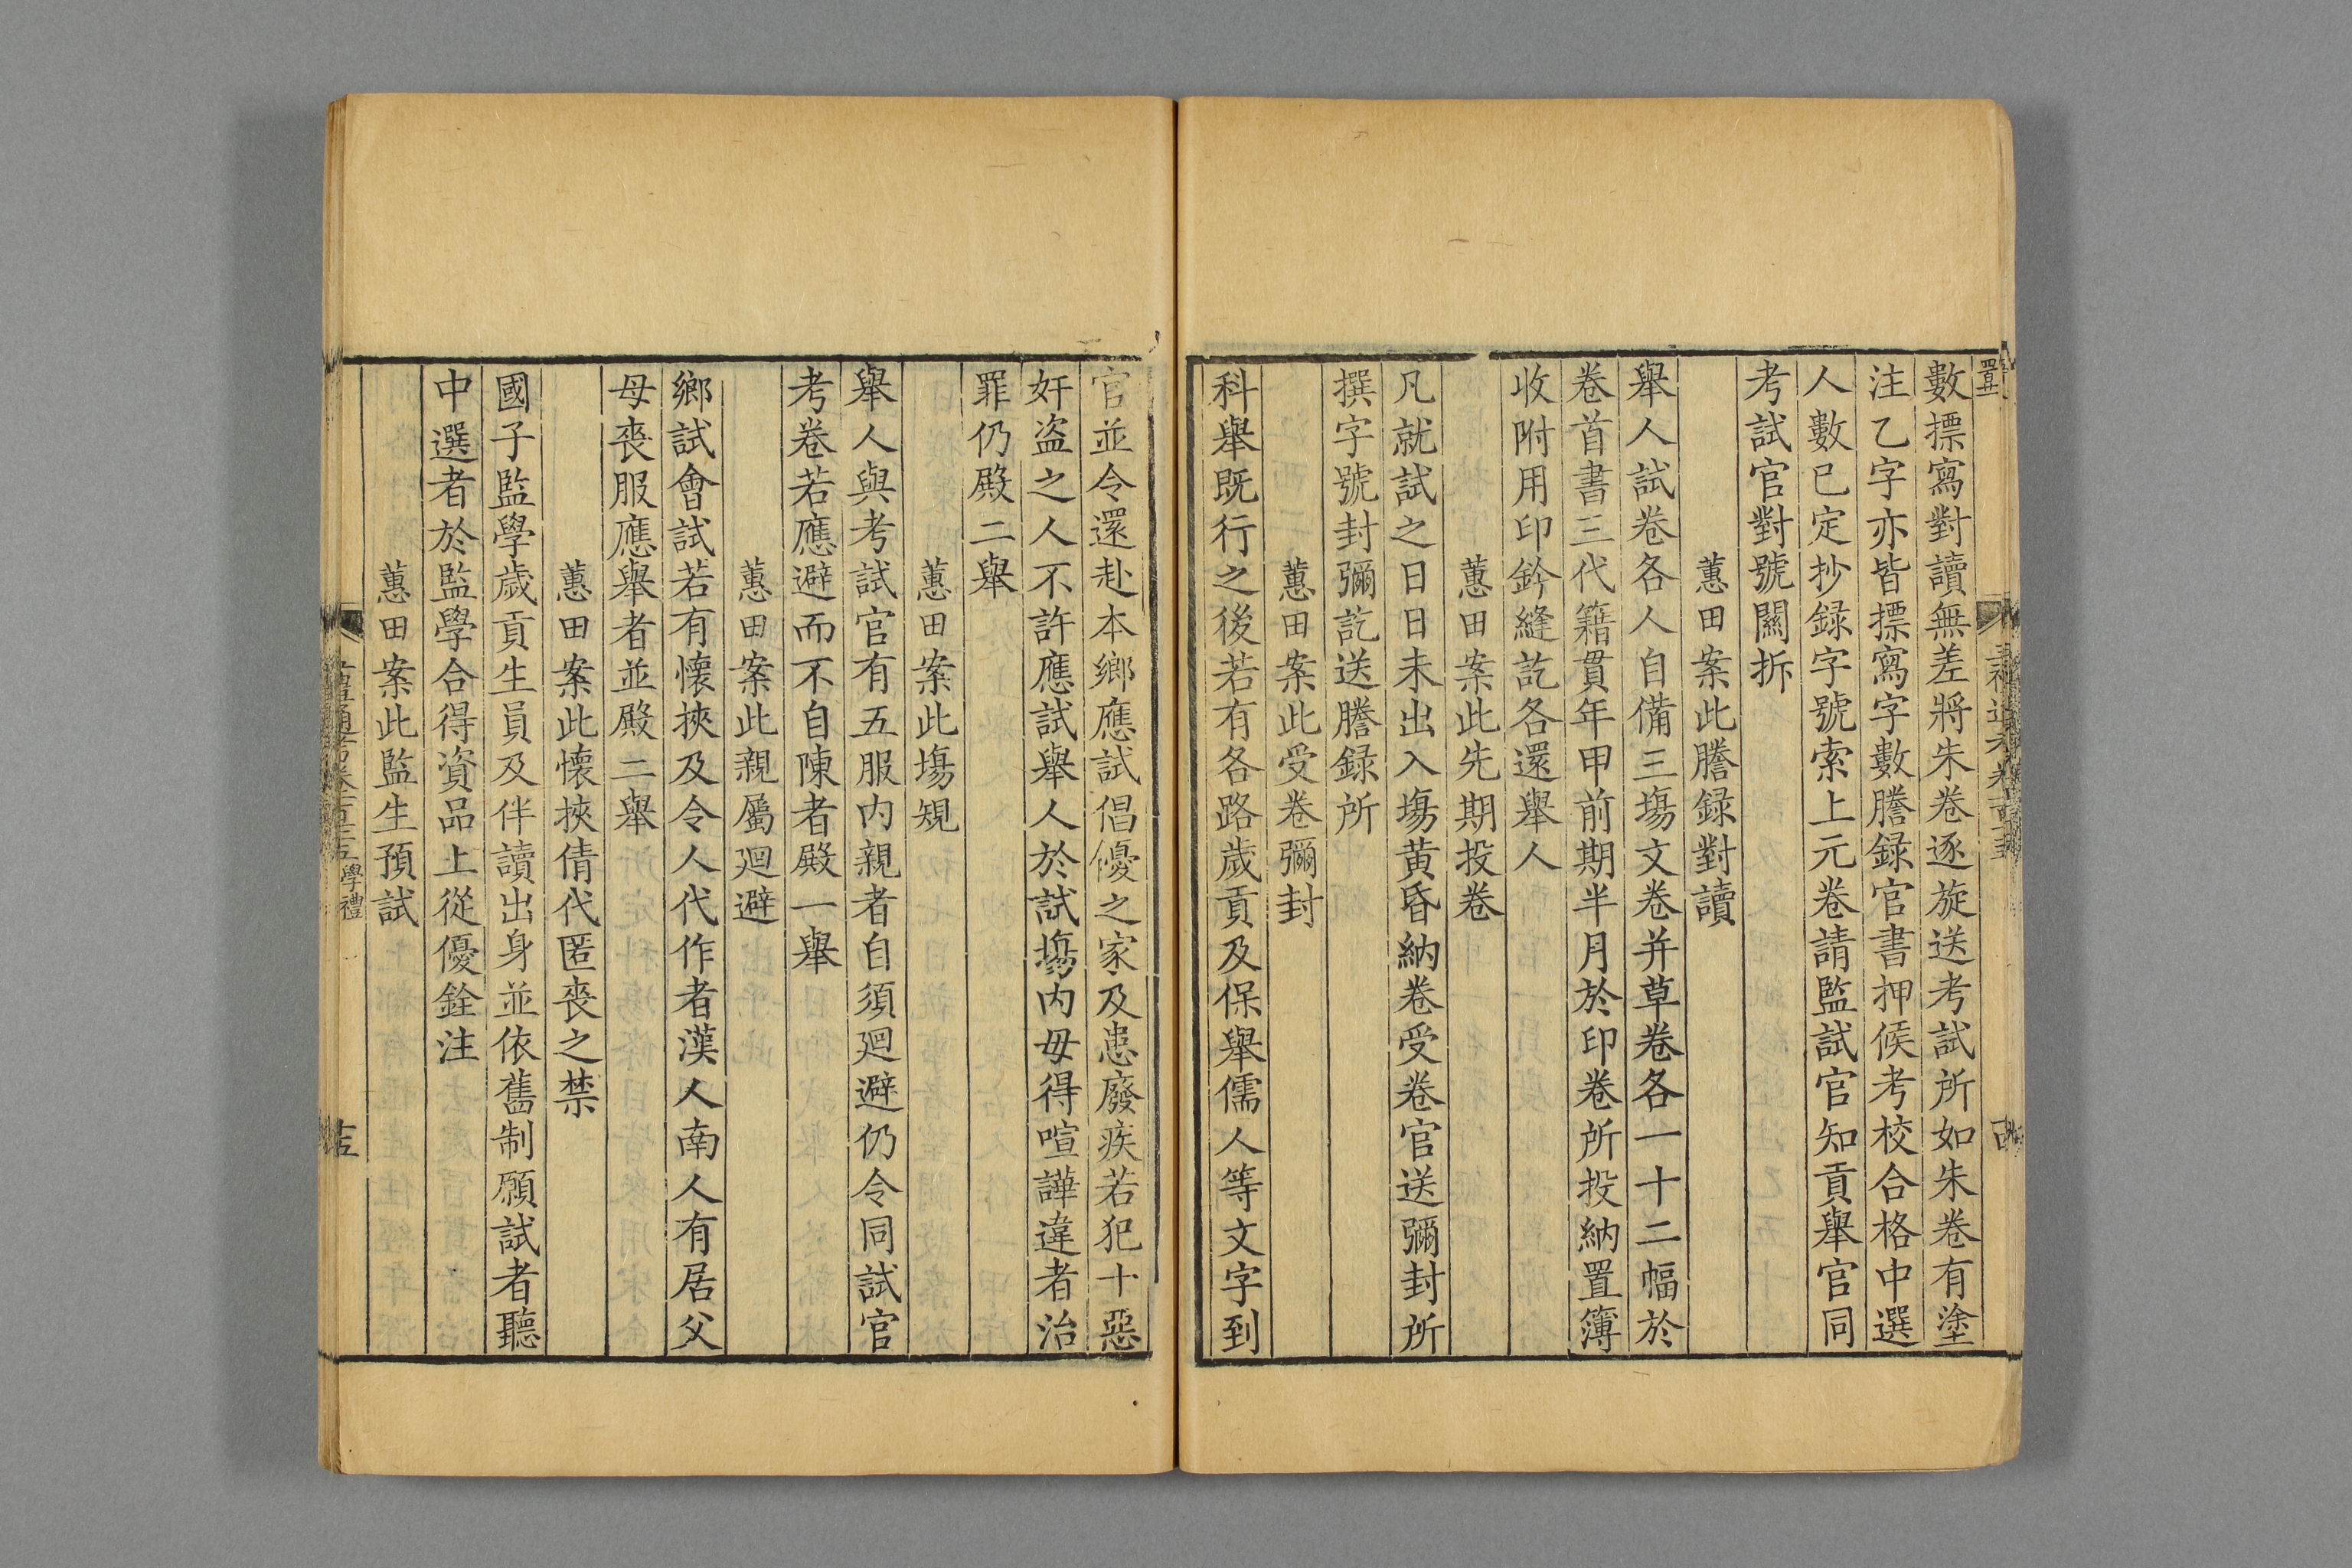 數摽寫對讀無差將朱卷逐旋送考試所如朱卷有塗
注乙字亦皆摽寫字數謄録官書押候考校合格中選
人數已定抄録字號索上元卷請監試官知貢舉官同
考試官對號開拆
蕙田案此謄録對讀
舉人試卷各人自備三塲文卷并草卷各一十二幅於
卷首書三代籍貫年甲前期半月於印卷所投納置簿
收附用印鈐縫訖各還舉人
蕙田案此先期投卷
凡就試之日日未出入塲黄昏納卷受卷官送彌封所
撰字號封彌訖送謄録所
蕙田案此受卷彌封
科舉既行之後若有各路歲貢及保舉儒人等文字到
官並令還赴本鄉應試倡優之家及患廢疾若犯十惡
奸盗之人不許應試舉人於試塲内毋得喧譁違者治
罪仍殿二舉
蕙田案此塲規
舉人與考試官有五服内親者自須廻避仍令同試官
考卷若應避而不自陳者殿一舉
蕙田案此親屬廻避
鄉試會試若有懷挾及令人代作者漢人南人有居父
母喪服應舉者並殿二舉
蕙田案此懷挾倩代匿喪之禁
國子監學歲貢生員及伴讀出身並依舊制願試者聽
中選者於監學合得資品上從優銓注
蕙田案此監生預試
學禮